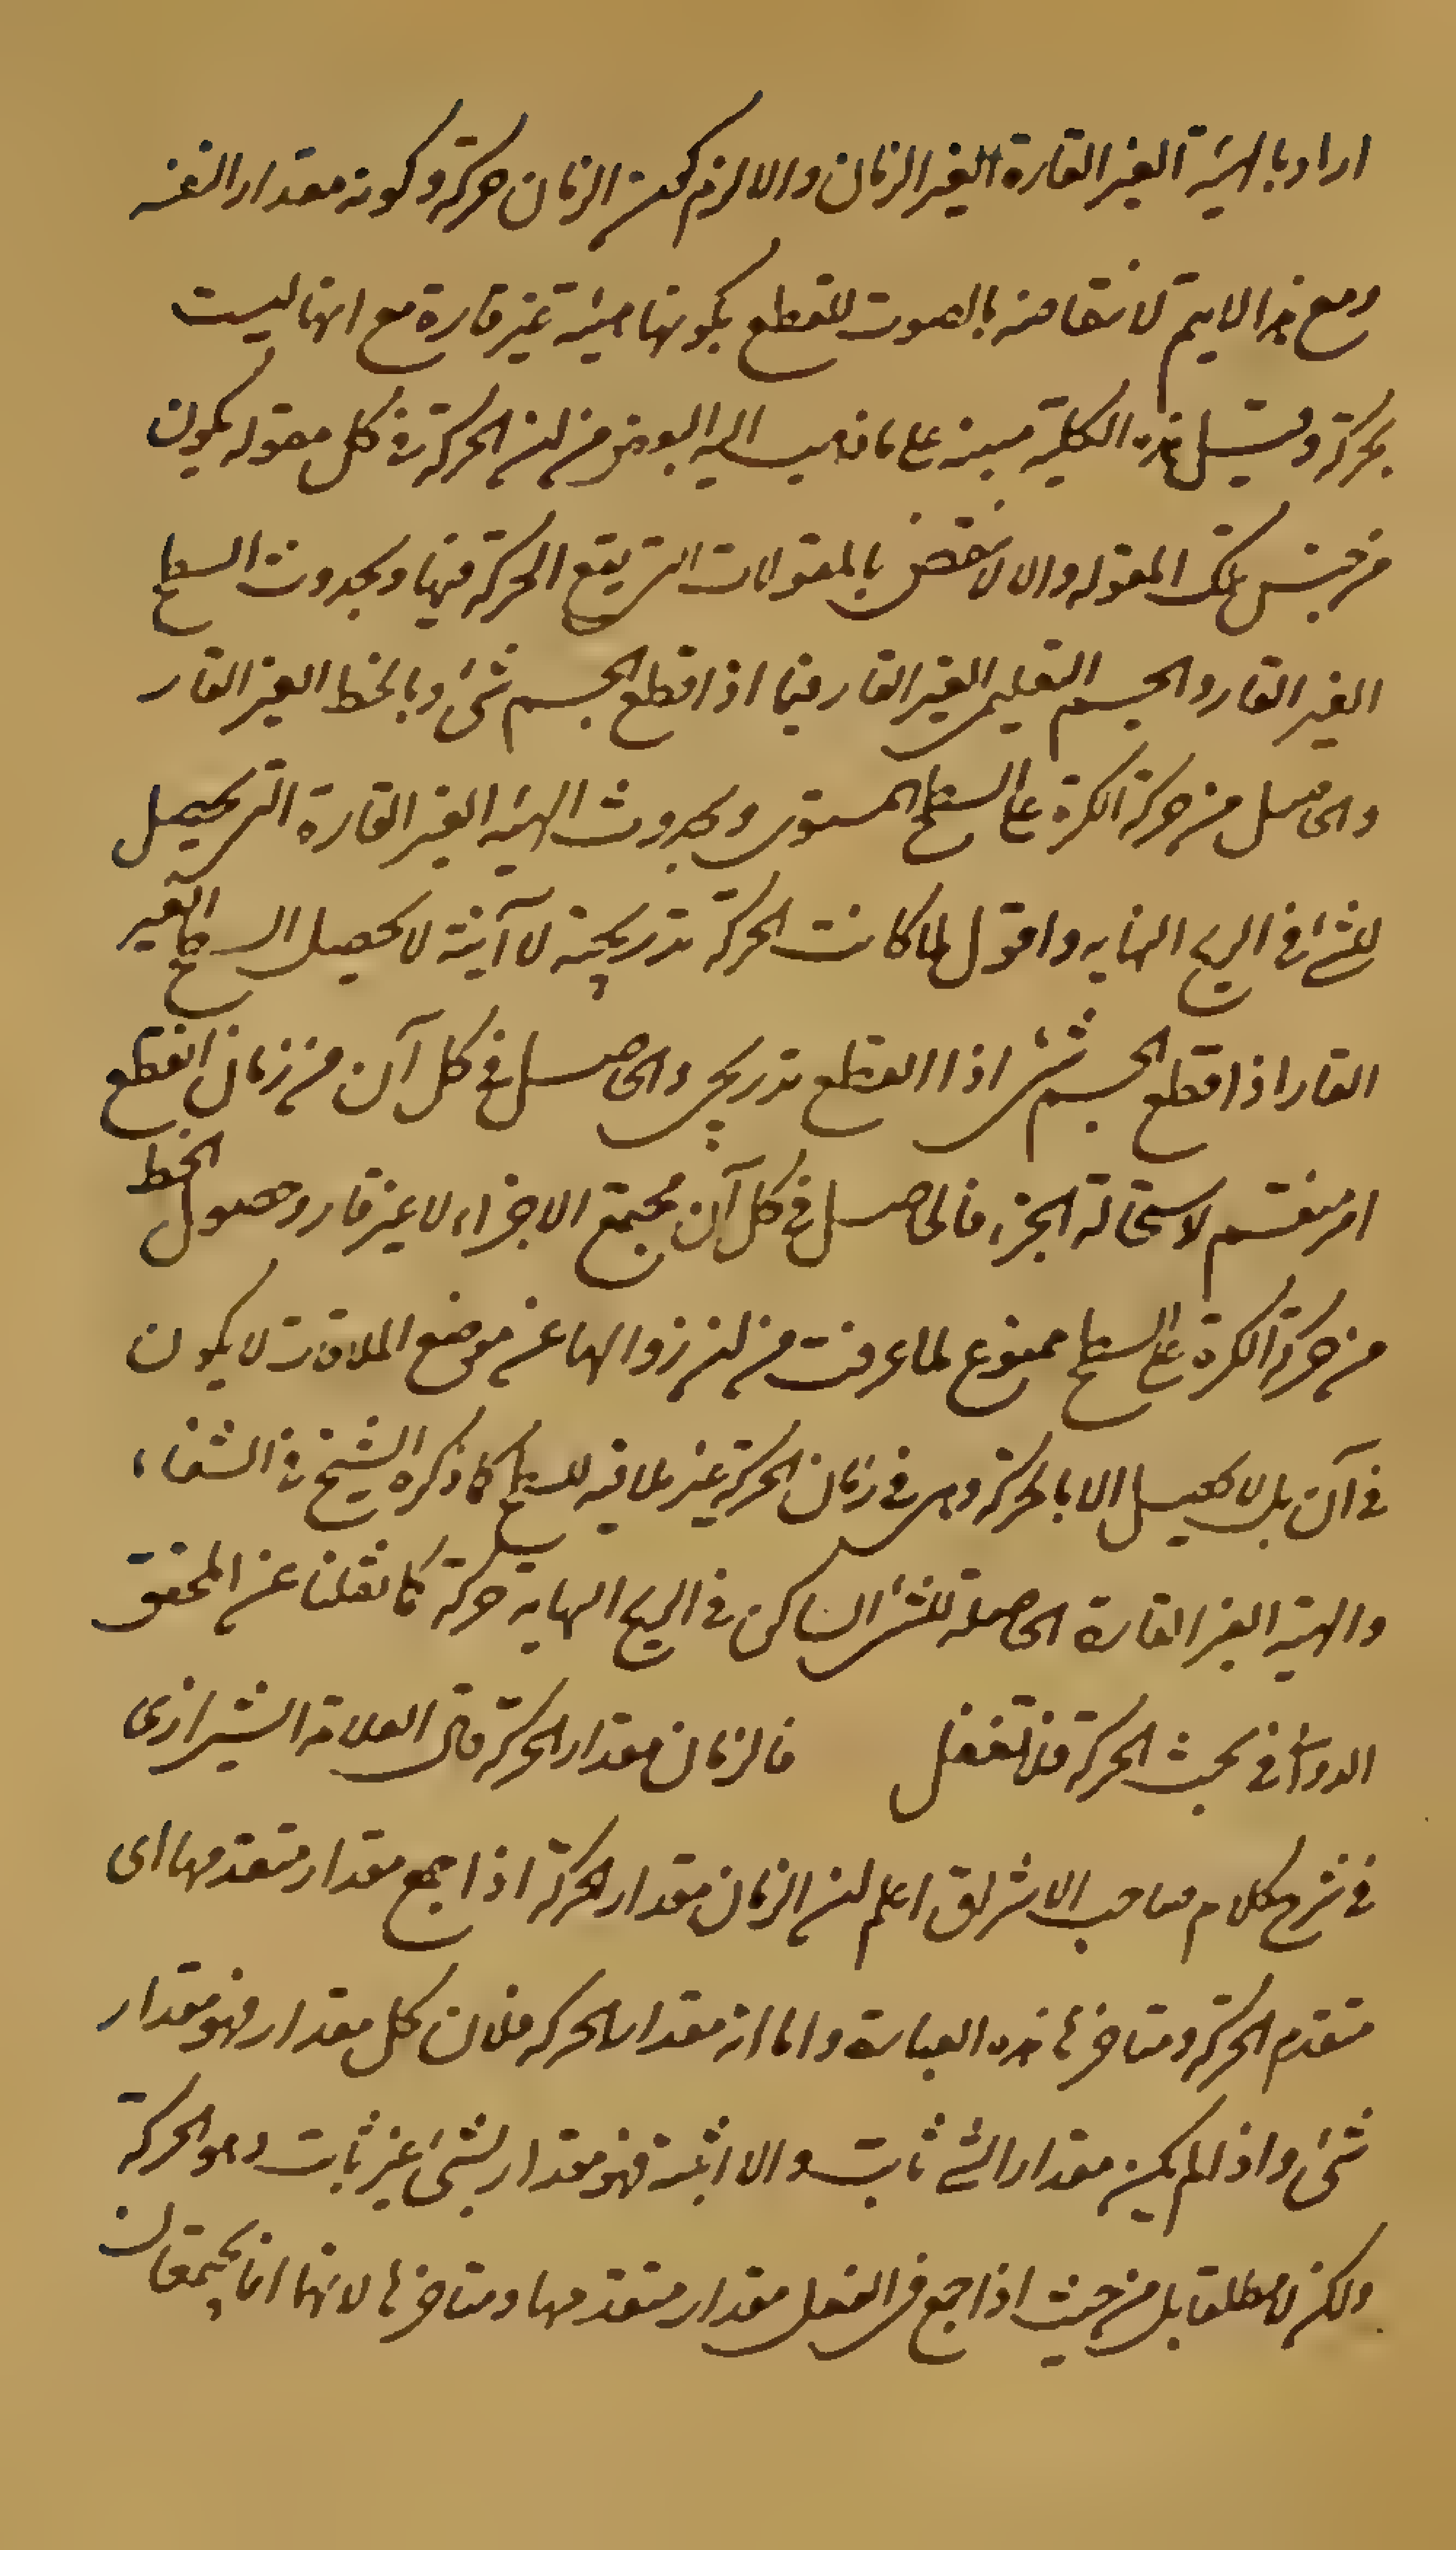 اراد بالهيئة الغير القارة الغير الزمان والا لزم كون الزمان حركة وكونه مقدارا لنفسه
ومع هذا لا يتم لانتقاضه بالصوت للقطع بكونها هيئة غير قارة مع انها ليست
بحركة وقيل هذه الكلية مبينة على ما ذهب اليه البعض من ان الحركة في كل مقوله يكون
من جنس تلك المقوله والا لانتقض بالمقولات التي يقع الحركة فيها وبحدوث السطح
الغير القار والجسم التعليمي الغير القار فيما اذا قطع الجسم شئ وبالخط الغير القار
والحاصل من حركة الكرة على السطح المستوى وبحدوث الهيئه الغير القارة التي يحصل
للشئ في الريح الهابه واقول لما كانت الحركة تدريجية لا آنية لا يحصل السطح الغير
القار اذا قطع الجسم شئ اذا القطع تدريجي والحاصل في كل آن من زمان القطع
امر منقسم لاستحالة الجزء فالحاصل في كل آن مجتمع الاجزاء لا غير قار وحصول الخط
من حركة الكرة على السطح ممنوع لما عرفت من ان زوالها عن موضع الملاقات لا يكون
في آن بل لا يحصل الا بالحركة وهي في زمان الحركة غير ملاقيه للسطح كما ذكره الشيخ في الشفاء
والهيئة الغير القارة الحاصله للشئ الساكن في الريح الهابة حركة كما نقلنا عن المحقق
الدواني في بحث الحركة فلا تغفل فالزمان مقدار الحركة قال العلامة الشيرازى
في شرح كلام صاحب الاشراق اعلم ان الزمان مقدار الحركة اذا جمع مقدار متقدمها اى
متقدم الحركة ومتاخرها هذه العبارة واما انه مقدار الحركه فلان كل مقدار فهو مقدار
شئ واذا لم يكن مقدارا لشئ ثابت والا اثبته فهو مقدار لشئ غير ثابت وهو الحركة
ولكن لا مطلقا بل من حيث اذا جمع في العقل مقدار متقدمها ومتاخرها لانهما انما يجتمعان